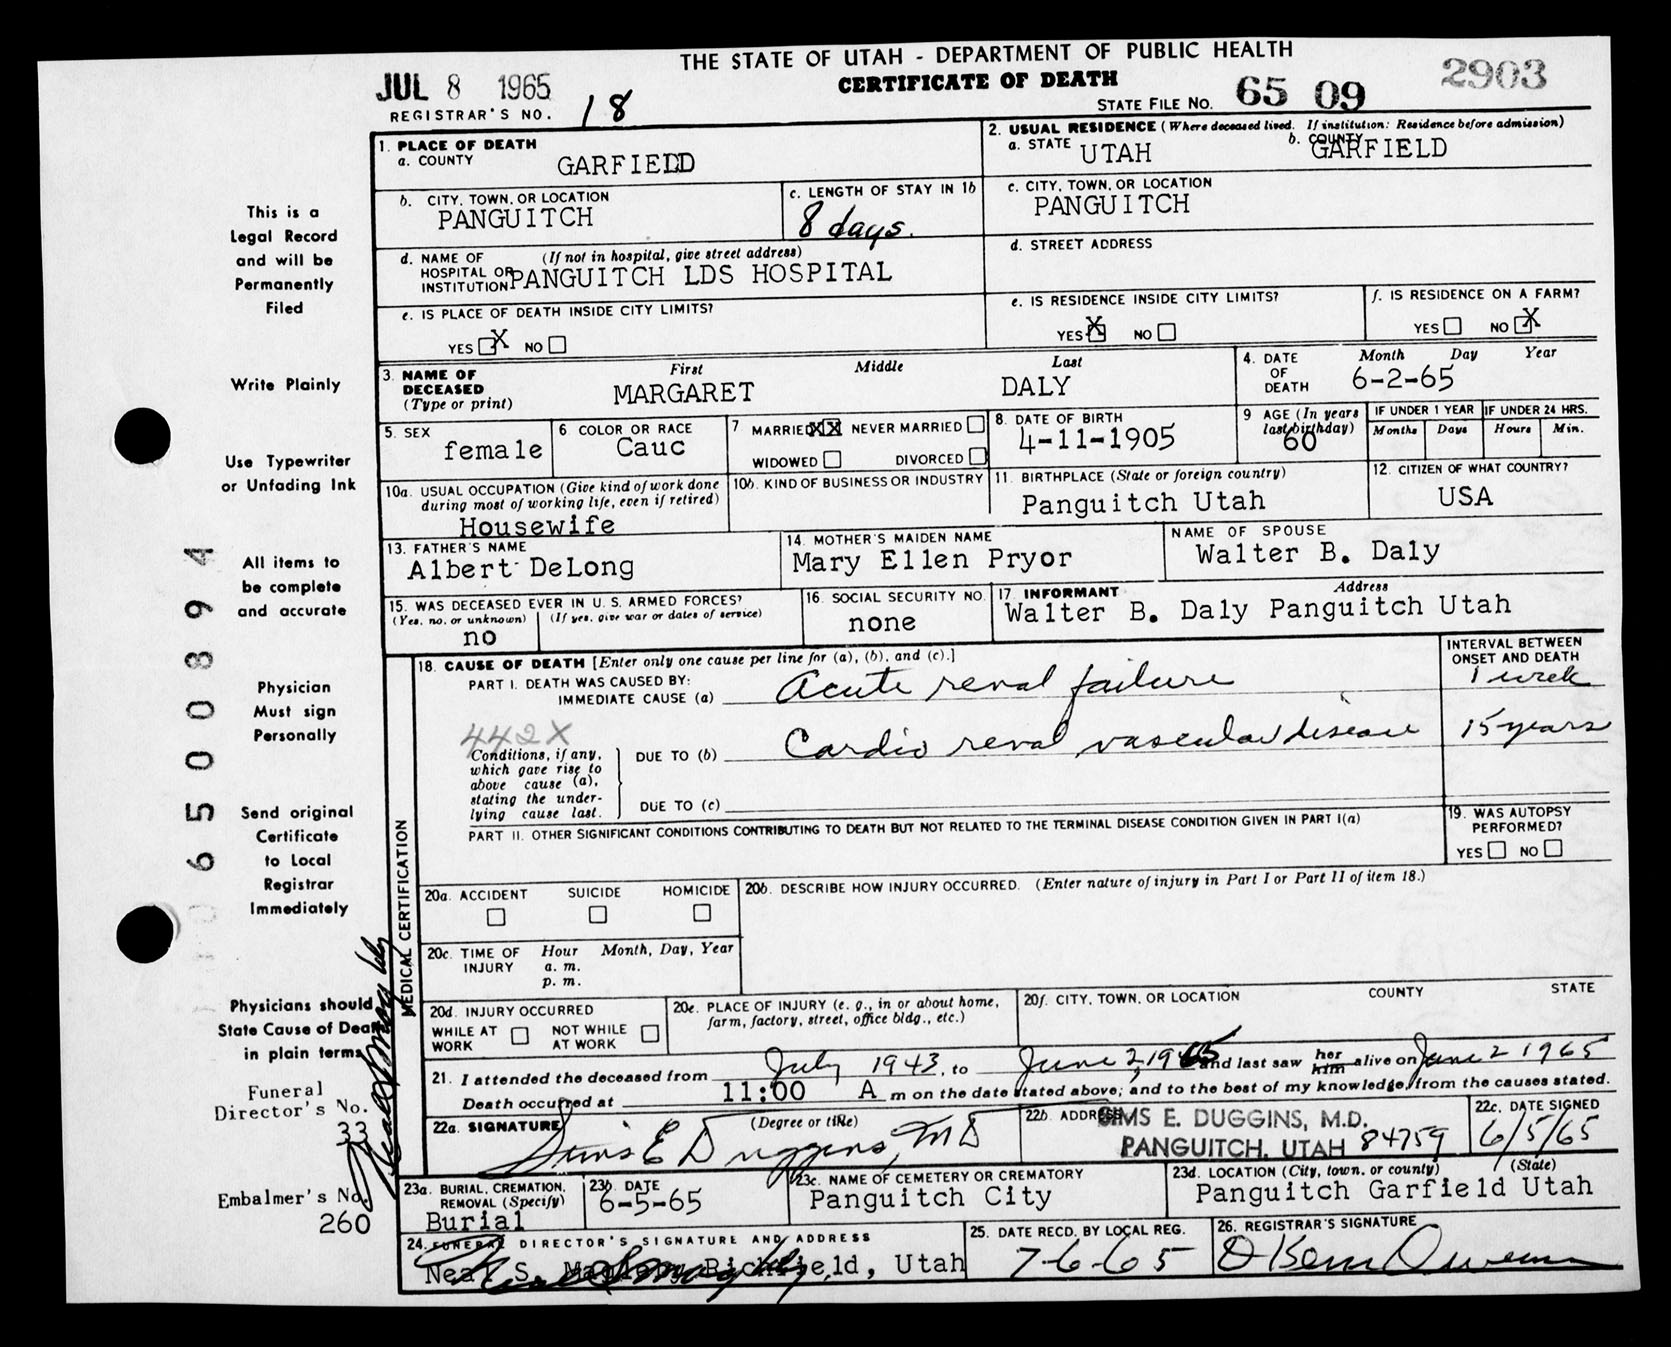 THE STATE OF UTAH - DEPARTMENT OF PUBLIC HEALTH
CERTIFICATE OF DEATH
JUL 8 1965
REGISTRAR'S NO. 18
STATE FILE NO. 65 09 2903
1. PLACE OF DEATH
a. COUNTY GARFIELD
2. USUAL RESIDENCE (Where deceased lived. If institution: Residence before admission)
a. STATE UTAH b. COUNTY GARFIELD
b. CITY, TOWN, OR LOCATION PANGUITCH
c. LENGTH OF STAY IN 1b 8 days.
c. CITY, TOWN, OR LOCATION PANGUITCH
d. NAME OF HOSPITAL OR INSTITUTION (If not in hospital, give street address) PANGUITCH LDS HOSPITAL
d. STREET ADDRESS
e. IS PLACE OF DEATH INSIDE CITY LIMITS?
YES X NO
e. IS RESIDENCE INSIDE CITY LIMITS?
YES X NO
f. IS RESIDENCE ON A FARM?
YES NO X
3. NAME OF DECEASED (Type or print)
First Middle Last
MARGARET DALY
4. DATE OF DEATH Month Day Year
6-2-65
5. SEX female
6 COLOR OR RACE Cauc
7 MARRIED XX NEVER MARRIED
WIDOWED DIVORCED
8. DATE OF BIRTH 4-11-1905
9 AGE (In years last birthday) 60
IF UNDER 1 YEAR Months Days
IF UNDER 24 HRS. Hours Min.
10a. USUAL OCCUPATION (Give kind of work done during most of working life, even if retired)
Housewife
10b. KIND OF BUSINESS OR INDUSTRY
11. BIRTHPLACE (State or foreign country)
Panguitch Utah
12. CITIZEN OF WHAT COUNTRY?
USA
13. FATHER'S NAME
Albert DeLong
14. MOTHER'S MAIDEN NAME
Mary Ellen Pryor
NAME OF SPOUSE
Walter B. Daly
15. WAS DECEASED EVER IN U. S. ARMED FORCES?
(Yes, no, or unknown) (If yes, give war or dates of service)
no
16. SOCIAL SECURITY NO.
none
17 INFORMANT Address
Walter B. Daly Panguitch Utah
MEDICAL CERTIFICATION
18. CAUSE OF DEATH [Enter only one cause per line for (a), (b), and (c).]
INTERVAL BETWEEN ONSET AND DEATH
PART I. DEATH WAS CAUSED BY:
IMMEDIATE CAUSE (a) Acute renal failure 1 week
442X
Conditions, if any, which gave rise to above cause (a), stating the underlying cause last.
DUE TO (b) Cardio renal vascular disease 15 years
DUE TO (c)
PART II. OTHER SIGNIFICANT CONDITIONS CONTRIBUTING TO DEATH BUT NOT RELATED TO THE TERMINAL DISEASE CONDITION GIVEN IN PART I(a)
19. WAS AUTOPSY PERFORMED?
YES NO
20a. ACCIDENT SUICIDE HOMICIDE
20b. DESCRIBE HOW INJURY OCCURRED. (Enter nature of injury in Part I or Part II of item 18.)
20c. TIME OF INJURY Hour Month, Day, Year
a. m.
p. m.
20d. INJURY OCCURRED
WHILE AT WORK NOT WHILE AT WORK
20e. PLACE OF INJURY (e. g., in or about home, farm, factory, street, office bldg., etc.)
20f. CITY, TOWN, OR LOCATION COUNTY STATE
21. I attended the deceased from July 1943, to June 2, 1965 and last saw her him alive on June 2 1965
Death occurred at 11:00 A m on the date stated above; and to the best of my knowledge, from the causes stated.
22a. SIGNATURE (Degree or title)
Sims E Duggins, MD
22b. ADDRESS SIMS E. DUGGINS, M.D.
PANGUITCH, UTAH 84759
22c. DATE SIGNED
6/5/65
23a. BURIAL, CREMATION, REMOVAL (Specify)
Burial
23b DATE
6-5-65
23c. NAME OF CEMETERY OR CREMATORY
Panguitch City
23d. LOCATION (City, town, or county) (State)
Panguitch Garfield Utah
24. FUNERAL DIRECTOR'S SIGNATURE AND ADDRESS
Neal S. Magleby Richfield, Utah
25. DATE RECD. BY LOCAL REG.
7-6-65
26. REGISTRAR'S SIGNATURE
This is a
Legal Record
and will be
Permanently
Filed
Write Plainly
Use Typewriter
or Unfading Ink
All items to
be complete
and accurate
Physician
Must sign
Personally
Send original
Certificate
to Local
Registrar
Immediately
Physicians should
State Cause of Death
in plain terms
Funeral
Director's No.
33
Embalmer's No.
260
Neal S Magleby
6500894